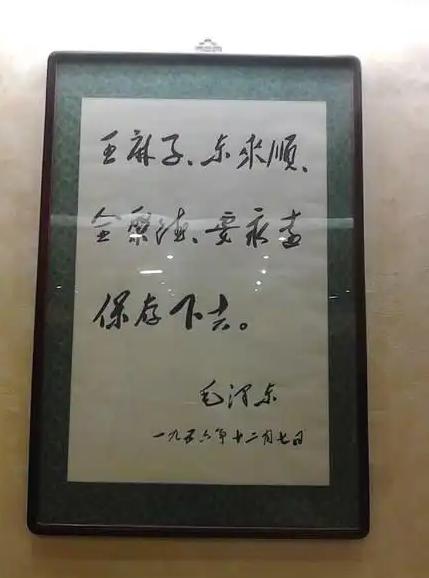 王麻子、东来顺、
全聚德、要永远
保存下去。
毛泽东
一九五六年十二月七日